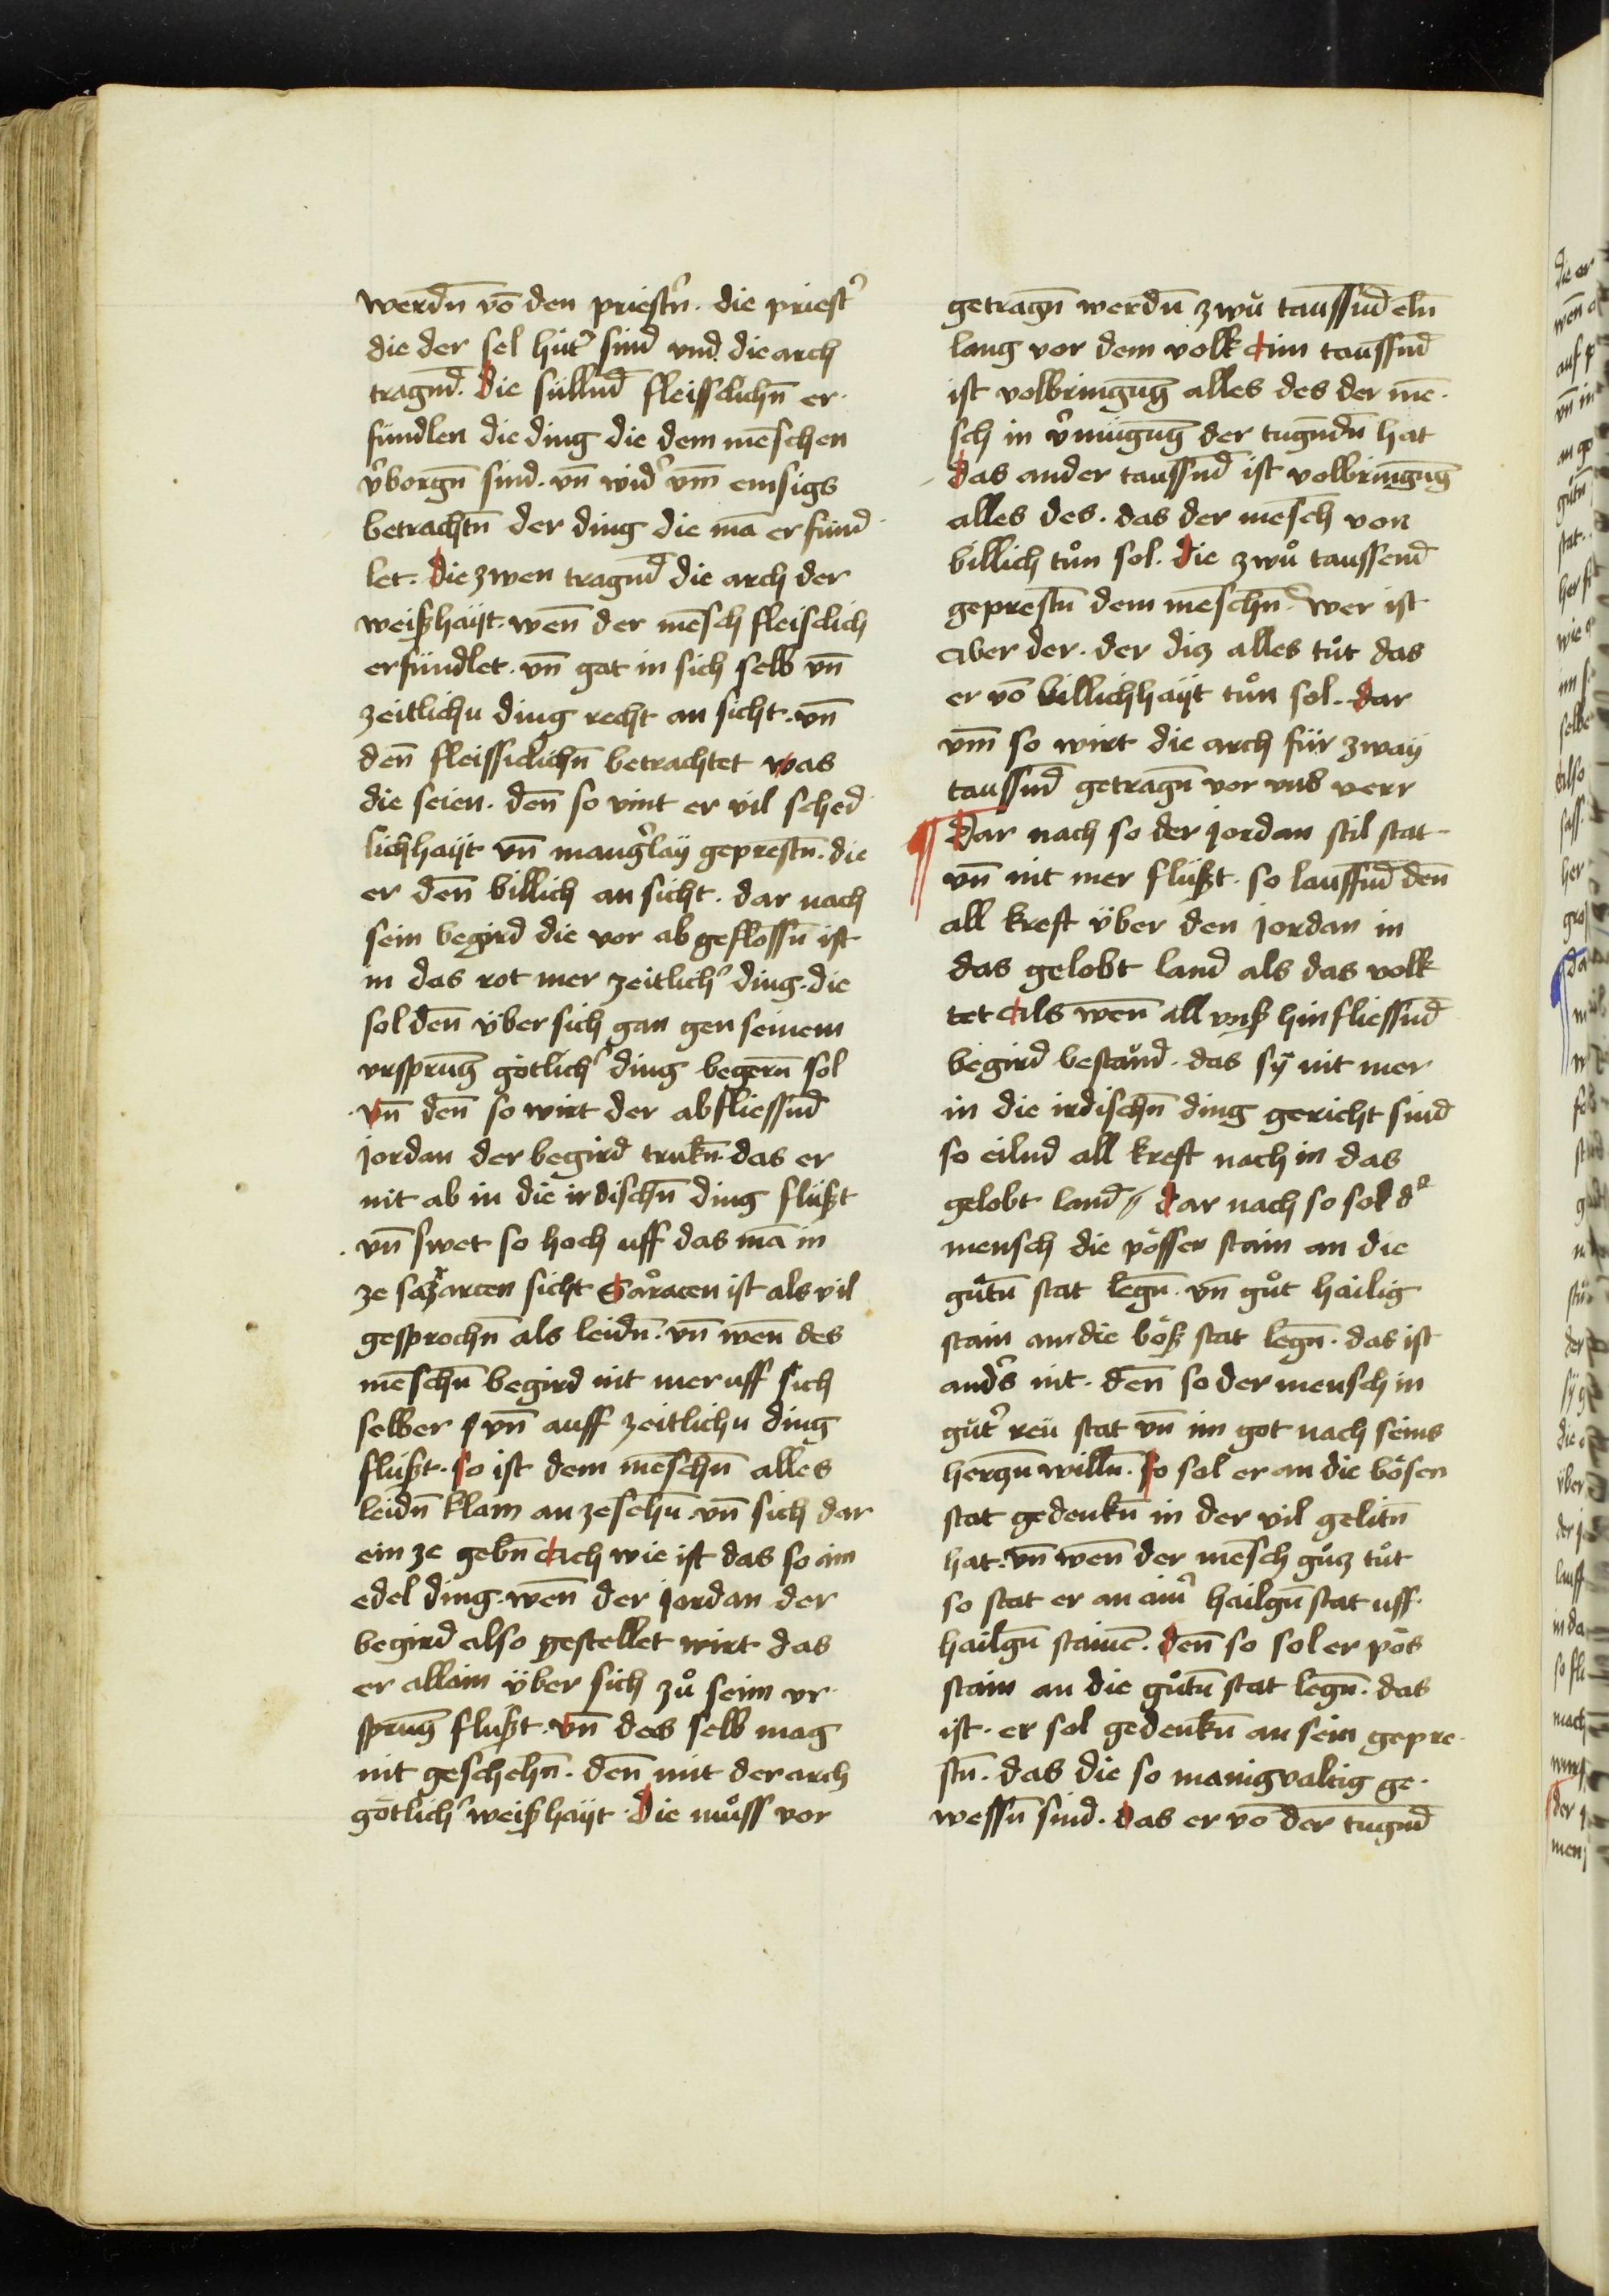 werdn̄ vō den priestn̄. die priestˀ
die der sel hütˀ sind vnd die arch
tragnd̄. Die süllnd̄ fleissclichn̄ er
fündlen die ding die dem mēschen
vˀborgn̄ sind. vn̄ widˀ vm̄ emsigs
betrachtn̄ der ding die mā erfünd
let. Die zwen tragnd̄ die arch der
weißhaÿt. wen̄ der mēsch fleisclich
erfündlet. vn̄ gat in sich selb vn̄
zeitlichu ding recht an sicht. vn̄
den̄ fleissiclichn̄ betrachtet was
die seien. den̄ so vint er vil sched
lichhaÿt vn̄ mangˀlaÿ geprestn̄. die
er den̄ billich an sicht. dar nach
sein begird die vor ab geflossn̄ ist
in das rot mer zeitlichˀ ding. die
sol den̄ über sich gan gen seinem
vrsprung götlichˀ ding begern̄ sol
vn̄ den̄ so wirt der abfliessnd̄
jordan der begird trukn̄. das er
nit ab in die irdischn̄ ding flüßt
vn̄ swet so hoch uff das mā in
ze sazarcen sicht Saͦracen ist als vil
gesprochn̄ als leidn̄. vn̄ wen̄ des
mēschn̄ begird nit mer uff sich
selber vn̄ auff zeitlichu ding
flüßt. so ist dem mēschn̄ alles
leidn̄ klam an zesehn̄. vn̄ sich dar
ein ze gebn̄ Ach wie ist das so ain
edel ding. wen̄ der jordan der
begird also gestellet wirt das
er allain über sich zuͦ seim vr
sprung flußt. vn̄ des selb mag
nit geschehn̄. den̄ mit der arch
götlichˀ weißhaÿt. Die muͦss vor
getragn̄ werdn̄ zwuͦ taussnd̄ eln̄
lang vor dem volk Ain taussnd̄
ist volbringūg alles des der mē
sch in vˀmügūg der tugndn̄ hat
Das ander taussnd̄ ist volbringūg
alles des. das der mēsch von
billich tuͦn sol. Die zwuͦ taussend̄
geprestn̄ dem mēschn̄. wer ist
aber der. der diz alles tuͦt das
er vō billichhaÿt tuͦn sol. dar
vm̄ so wirt die arch für zwaÿ
taussnd̄ getragn̄ vor vns verr
Dar nach so der jordan stil stat
vn̄ nit mer flüßt. so lauffnd̄ den̄
all kreft über den jordan in
das gelobt land als das volk
tet Als wen̄ all vnß hinfliessnd̄
begird bestand̄. das sÿ nit mer
in die irdischn̄ ding gericht sind
so eilnd all kreft nach in das
gelobt land̄ // dar nach so sol dˀ
mensch die pössen stain an die
guͦtn̄ stat legn̄. vn̄ guͦt hailig
stain an die böß stat legn̄. das ist
andˀs nit. den̄ so der mensch in
guͦtˀ reü stat vn̄ im got nach seins
hergn̄ willn̄. so sol er an die bösen
stat gedenkn̄ in der vil gelitn̄
hat. vn̄ wen̄ der mēsch guͦz tuͦt
so stat er an aimˀ hailgn̄ stat uff
hailgn̄ stainē. den̄ so sol er pös
stain an die guͦtn̄ stat legn̄. das
ist. er sol gedenkn̄ an sein gepre
stn̄. das die so manigvaltig ge
wessn̄ sind. das er vō der tugnd̄